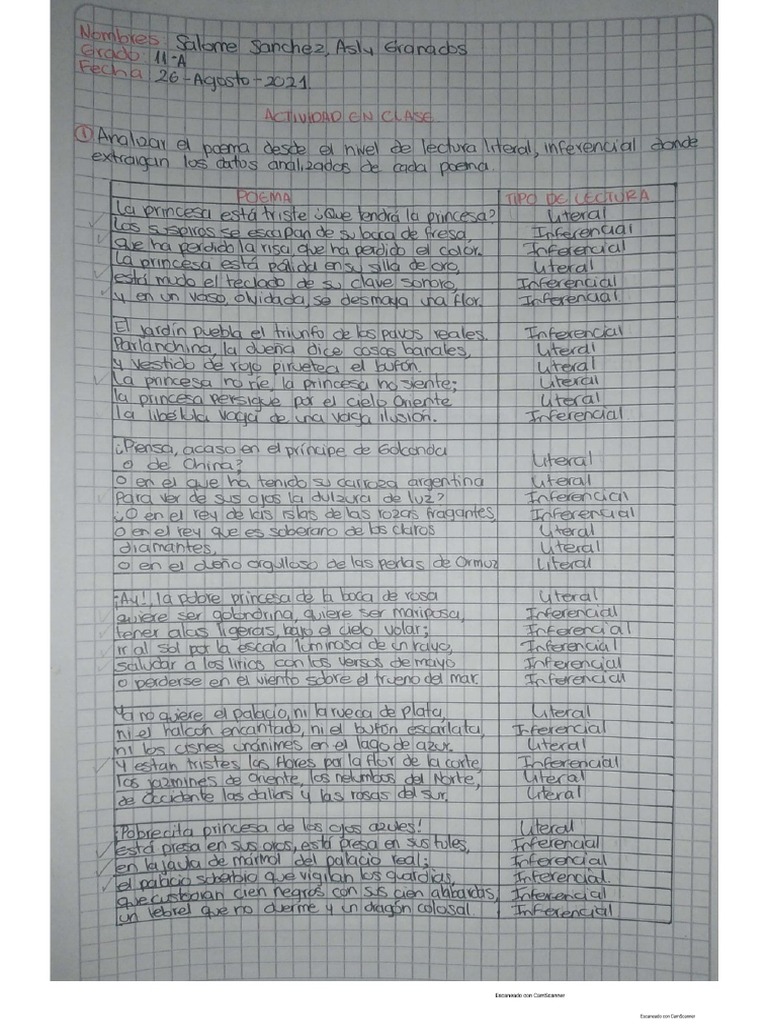 Nombres: Salome Sanchez, Asly Granados
Grado: 11-A
Fecha: 26-Agosto-2021.
ACTIVIDAD EN CLASE
① Analizar el poema desde el nivel de lectura literal, inferencial donde
extraigan los datos analizados de cada poema.
POEMA TIPO DE LECTURA
La princesa está triste ¿Que tendrá la princesa? Literal
Los suspiros se escapan de su boca de fresa, Inferencial
que ha perdido la risa, que ha perdido el color. Inferencial
La princesa está pálida en su silla de oro, Literal
está mudo el teclado de su clave sonoro, Inferencial
y en un vaso, olvidada, se desmaya una flor. Inferencial
El jardín puebla el triunfo de los pavos reales. Inferencial
Parlanchina, la dueña dice cosas banales, Literal
y vestido de rojo piruetea el bufón. Literal
La princesa no ríe, la princesa no siente; Literal
la princesa persigue por el cielo Oriente Literal
la libélula vaga de una vaga ilusión. Inferencial
¿Piensa, acaso en el príncipe de Golconda
o de China? Literal
o en el que ha tenido su carroza argentina Literal
Para ver de sus ojos la dulzura de luz? Inferencial
¿O en el rey de las islas de las rozas fragantes, Inferencial
o en el rey que es soberano de los claros Literal
diamantes, Literal
o en el dueño orgulloso de las perlas de Ormuz Literal
¡Ay!, la pobre princesa de la boca de rosa Literal
quiere ser golondrina, quiere ser mariposa, Inferencial
tener alas ligeras, bajo el cielo volar; Inferencial
ir al sol por la escala luminosa de un rayo, Inferencial
saludar a los lirios con los versos de mayo Inferencial
o perderse en el viento sobre el trueno del mar. Inferencial
Ya no quiere el palacio, ni la rueca de plata, Literal
ni el halcon encantado, ni el bufón escarlata, Inferencial
ni los cisnes unánimes en el lago de azur. Literal
Y estan tristes las flores por la flor de la corte, Inferencial
los jazmines de Oriente, los nelumbos del Norte, Literal
de Occidente las dalias y las rosas del sur. Literal
¡Pobrecita princesa de los ojos azules! Literal
está presa en sus oros, está presa en sus tules, Inferencial
en la jaula de mármol del palacio real; Inferencial
el palacio soberbio que vigilan los guardias, Inferencial.
que custodian cien negros con sus cien alabardas, Inferencial
un lebrel que no duerme y un dragón colosal. Inferencial
Escaneado con CamScanner
Escaneado con CamScanner